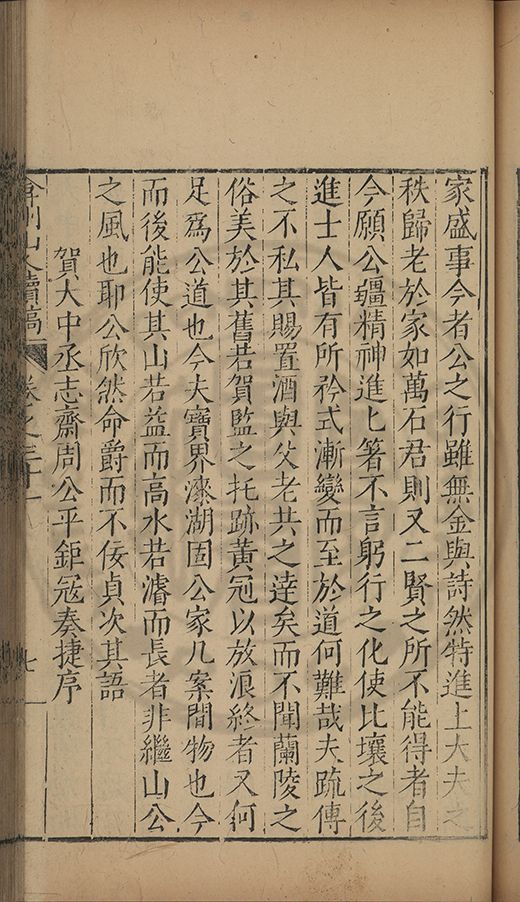 家盛事今者公之行雖無金與詩然特進上大夫之
秩歸老於家如萬石君則又二賢之所不能得者自
今願公彊精神進匕箸不言躬行之化使比壤之後
進士人皆有所矜式漸變而至於道何難哉夫疏傅
之不私其賜置酒與父老共之達矣而不聞蘭陵之
俗美於其舊若賀監之托跡黃冠以放浪終者又何
足爲公道也今夫寶界濠湖固公家几案間物也今
而後能使其山若益而高水若濬而長者非繼山公
之風也耶公欣然命爵而不佞貞次其語
賀大中丞志齋周公平鉅冦奏捷序
弇州山人續稿
卷之三十一
七